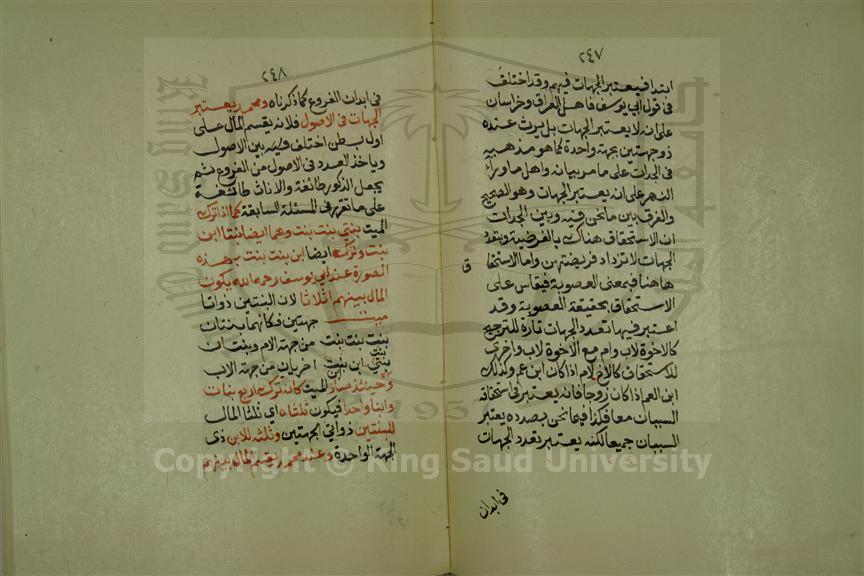 ٢٤٧
ابتداء فيعتبر الجهات فيهم وقد اختلف
في قول ابي يوسف فاهل العراق وخراسان
على انه لا يعتبر الجهات بل يرث عنده
ذو جهتين بجهة واحدة كما هو مذهبه
في الجدات على ما مر بيانه واهل ماوراء
النهر على انه يعتبر الجهات وهو الصحيح
والفرق بين ما نحن فيه وبين الجدات
ان الاستحقاق هناك بالفرضية وبتعدد
الجهات لا تزداد فريضتهن واما الاستحقا
ق
هاهنا فبمعنى العصوبة فيقاس على
الاستحقاق بحقيقة العصوبة وقد
اعتبر فيها تعدد الجهات تارة للترجيح
كالاخوة لاب وام مع الاخوة لاب واخرى
للاستحقاق كالاخ لام اذا كان ابن عم وكذلك
ابن العم اذا كان زوجا فانه يعتبر في استحقاقه
السببان معا فكذا فيما نحن بصدده يعتبر
السببان جميعا لكنه يعتبر تعدد الجهات
في ابدان
٢٤٨
في ابدان الفروع كما ذكرناه ومحمد يعتبر
الجهات في الاصول فلانه يقسم المال على
اول بطن اختلف وقسمه بين الاصول
وياخذ العدد في الاصول من الفروع ثم
يجعل الذكور طائفة والاناث طائفة
على ما تقرر في المسئلة السابقة كما اذا ترك
الميت بنتي بنت بنت وهما ايضا بنتا ابن
بنت وترك ايضا ابن بنت بنت بهذه
الصورة عند ابي يوسف رحمه الله يكون
المال بينهم اثلاثا لان البنتين ذواتا
ميت جهتين فكانهما بنتان
بنت بنت بنت من جهة الام وبنتان
بنتي ابن بنت اخريان من جهة الاب
وحينئذ صار الميت كانه ترك اربع بنات
وابنا واحدا فيكون ثلثاه اي ثلثا المال
للبنتين ذواتي الجهتين وثلثه للابن ذي
الجهة الواحدة وعند محمد يقسم المال بينهم
Copyright © King Saud University